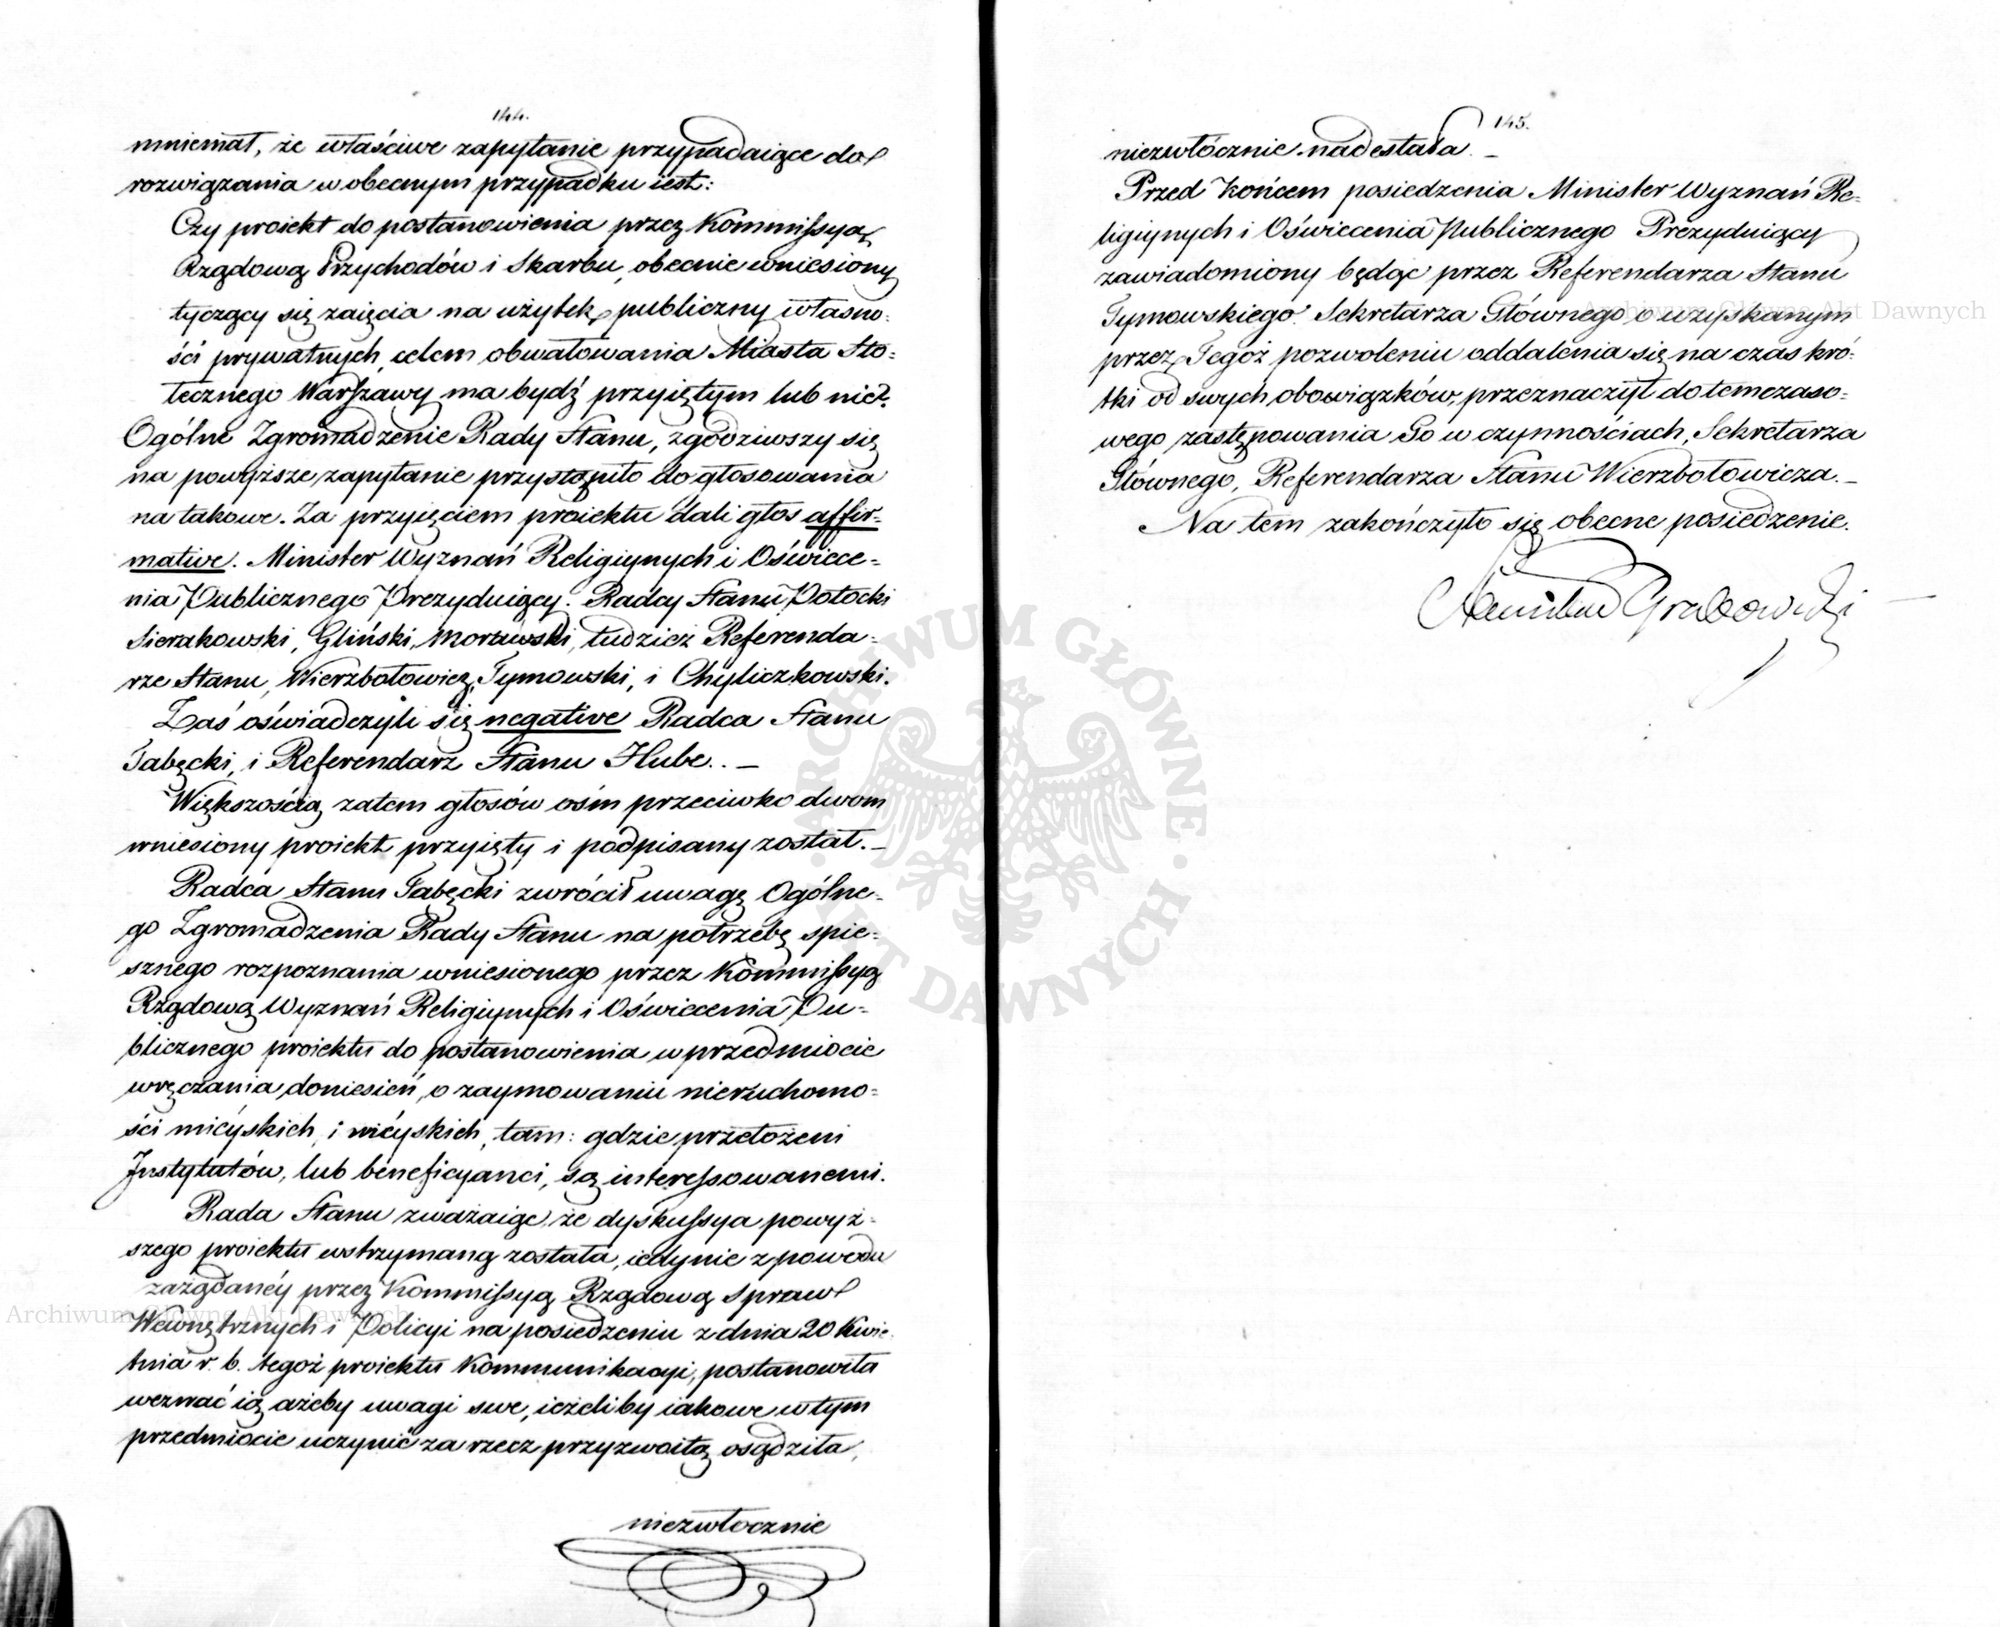 144.
mniemał, że właściwe zapytanie przypadaiące do
rozwiązania w obecnym przypadku iest:
Czy proiekt do postanowienia przez Kommissyą
Rządową Przychodów i Skarbu, obecnie wniesiony
tyczący się zaięcia na użytek publiczny własno-
ści prywatnych, celem obwałowania Miasta Sto-
łecznego Warszawy ma bydź przyiętym lub nie?
Ogólne Zgromadzenie Rady Stanu, zgodziwszy się
na powyższe zapytanie przystąpiło do głosowania
na takowe. Za przyięciem proiektu dali głos affir-
mative. Minister Wyznań Religiynych i Oświece-
nia Publicznego Prezyduiący. Radcy Stanu Potocki
Sierakowski, Gliński, Morawski, tudzież Referenda-
rze Stanu, Wierzbołowicz, Tymowski, i Chyliczkowski.
Zaś oświadczyli się negative Radca Stanu
Tabęcki, i Referendarz Stanu Hube. _
Większością zatem głosów ośm przeciwko dwom
wniesiony proiekt przyięty i podpisany został. _
Radca Stanu Tabęcki zwrócił uwagę Ogólne-
go Zgromadzenia Rady Stanu na potrzebę spie-
sznego rozpoznania wniesionego przez Kommissyą
Rządową Wyznań Religiynych i Oświecenia Pu-
blicznego proiektu do postanowienia w przedmiocie
wręczania doniesień, o zaymowaniu nieruchomo-
ści mieyskich, i wieyskich, tam: gdzie przełożeni
Instytutów, lub beneficyanci, są interessowanemi.
Rada Stanu zważaiąc, że dyskussya powyż-
szego proiektu wstrzymaną została, iedynie z powodu
zażądaney przez Kommissyą Rządową Spraw
Wewnętrznych i Policyi na posiedzeniu z dnia 20 Kwie-
tnia r. b. tegoż proiektu Kommunikacyi, postanowiła
wezwać ią, ażeby uwagi swe, ieżeliby iakowe w tym
przedmiocie uczynić za rzecz przyzwoitą osądziła,
niezwłocznie
145.
niezwłócznie nadesłała. _
Przed końcem posiedzenia Minister Wyznań Re-
ligiynych i Oświecenia Publicznego Prezyduiący
zawiadomiony będąc przez Referendarza Stanu
Tymowskiego Sekretarza Głównego o uzyskanym
przez Tegoż pozwoleniu oddalenia się na czas kró-
tki od swych obowiązków, przeznaczył do temczaso-
wego zastępowania Go w czynnościach, Sekretarza
Głównego, Referendarza Stanu Wierzbołowicza. _
Na tem zakończyło się obecne posiedzenie.
Stanisław Grabowski
ARCHIWUM GŁÓWNE AKT DAWNYCH
Archiwum Główne Akt Dawnych
Archiwum Główne Akt Dawnych